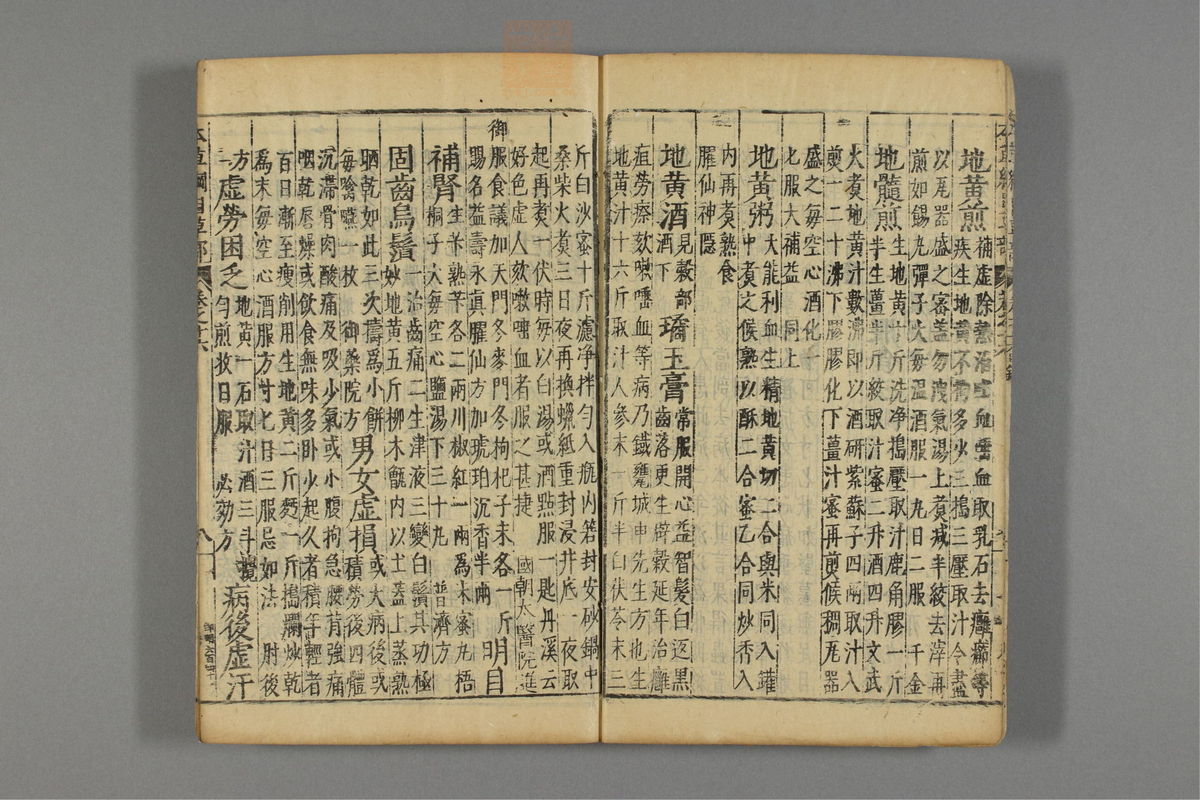 地黃煎補虛除熱治吐血唾血取乳石去癰癤等
疾生地黃不拘多少三搗三壓取汁令盡
以瓦器盛之密蓋勿洩氣湯上煮減半絞去滓再
煎如錫丸彈子大每溫酒服一丸日二服　千金
地髓煎生地黃十斤洗淨搗壓取汁鹿角膠一斤
半生薑半斤絞取汁蜜二升酒四升文武
火煮地黃汁數沸即以酒研紫蘇子四兩取汁入
煎一二十沸下膠膠化下薑汁蜜再煎候稠瓦器
盛之每空心酒化一
匕服大補益　同上
地黃粥大能利血生精地黃切二合與米同入罐
中煮之候熟以酥二合蜜乙合同炒香入
內再煮熟食
臞仙神隱
地黃酒見穀部酒下　瓊玉膏常服開心益智髮白返黑齒落更生辟穀延年治癰
疽勞瘵欬嗽唾血等病乃鐵甕城申先生方也生
地黃汁十六斤取汁人參末一斤半白茯苓末三
斤白沙蜜十斤濾淨拌勻入瓶內箬封安砂鍋中
桑柴火煮三日夜再換蠟紙重封浸井底一夜取
起再煮一伏時每以白湯或酒點服一匙丹溪云
好色虛人欬嗽唾血者服之甚捷　國朝太醫院進
御服食議加天門冬麥門冬枸杞子末各一斤
賜名益壽永真臞仙方加琥珀沉香半兩　明目
補腎生苄熟苄各二兩川椒紅一兩爲末蜜丸梧
桐子大每空心鹽湯下三十丸　普濟方
固齒烏鬚一治齒痛二生津液三變白鬚其功極
妙地黃五斤柳木甑內以土蓋上蒸熟
晒乾如此三次擣爲小餅
每噙嚥一枚　御藥院方　男女虛損或大病後或積勞後四體
沉滯骨肉酸痛及吸吸少氣或小腹拘急腰背強痛
咽乾唇燥或飲食無味多臥少起久者積年輕者
百日漸至瘦削用生地黃二斤麪一斤搗爛炒乾
爲末每空心酒服方寸匕日三服忌如法　肘後
方　虛勞困乏地黃一石取汁酒三斗攪
勻煎收日服　必効方　病後虛汗